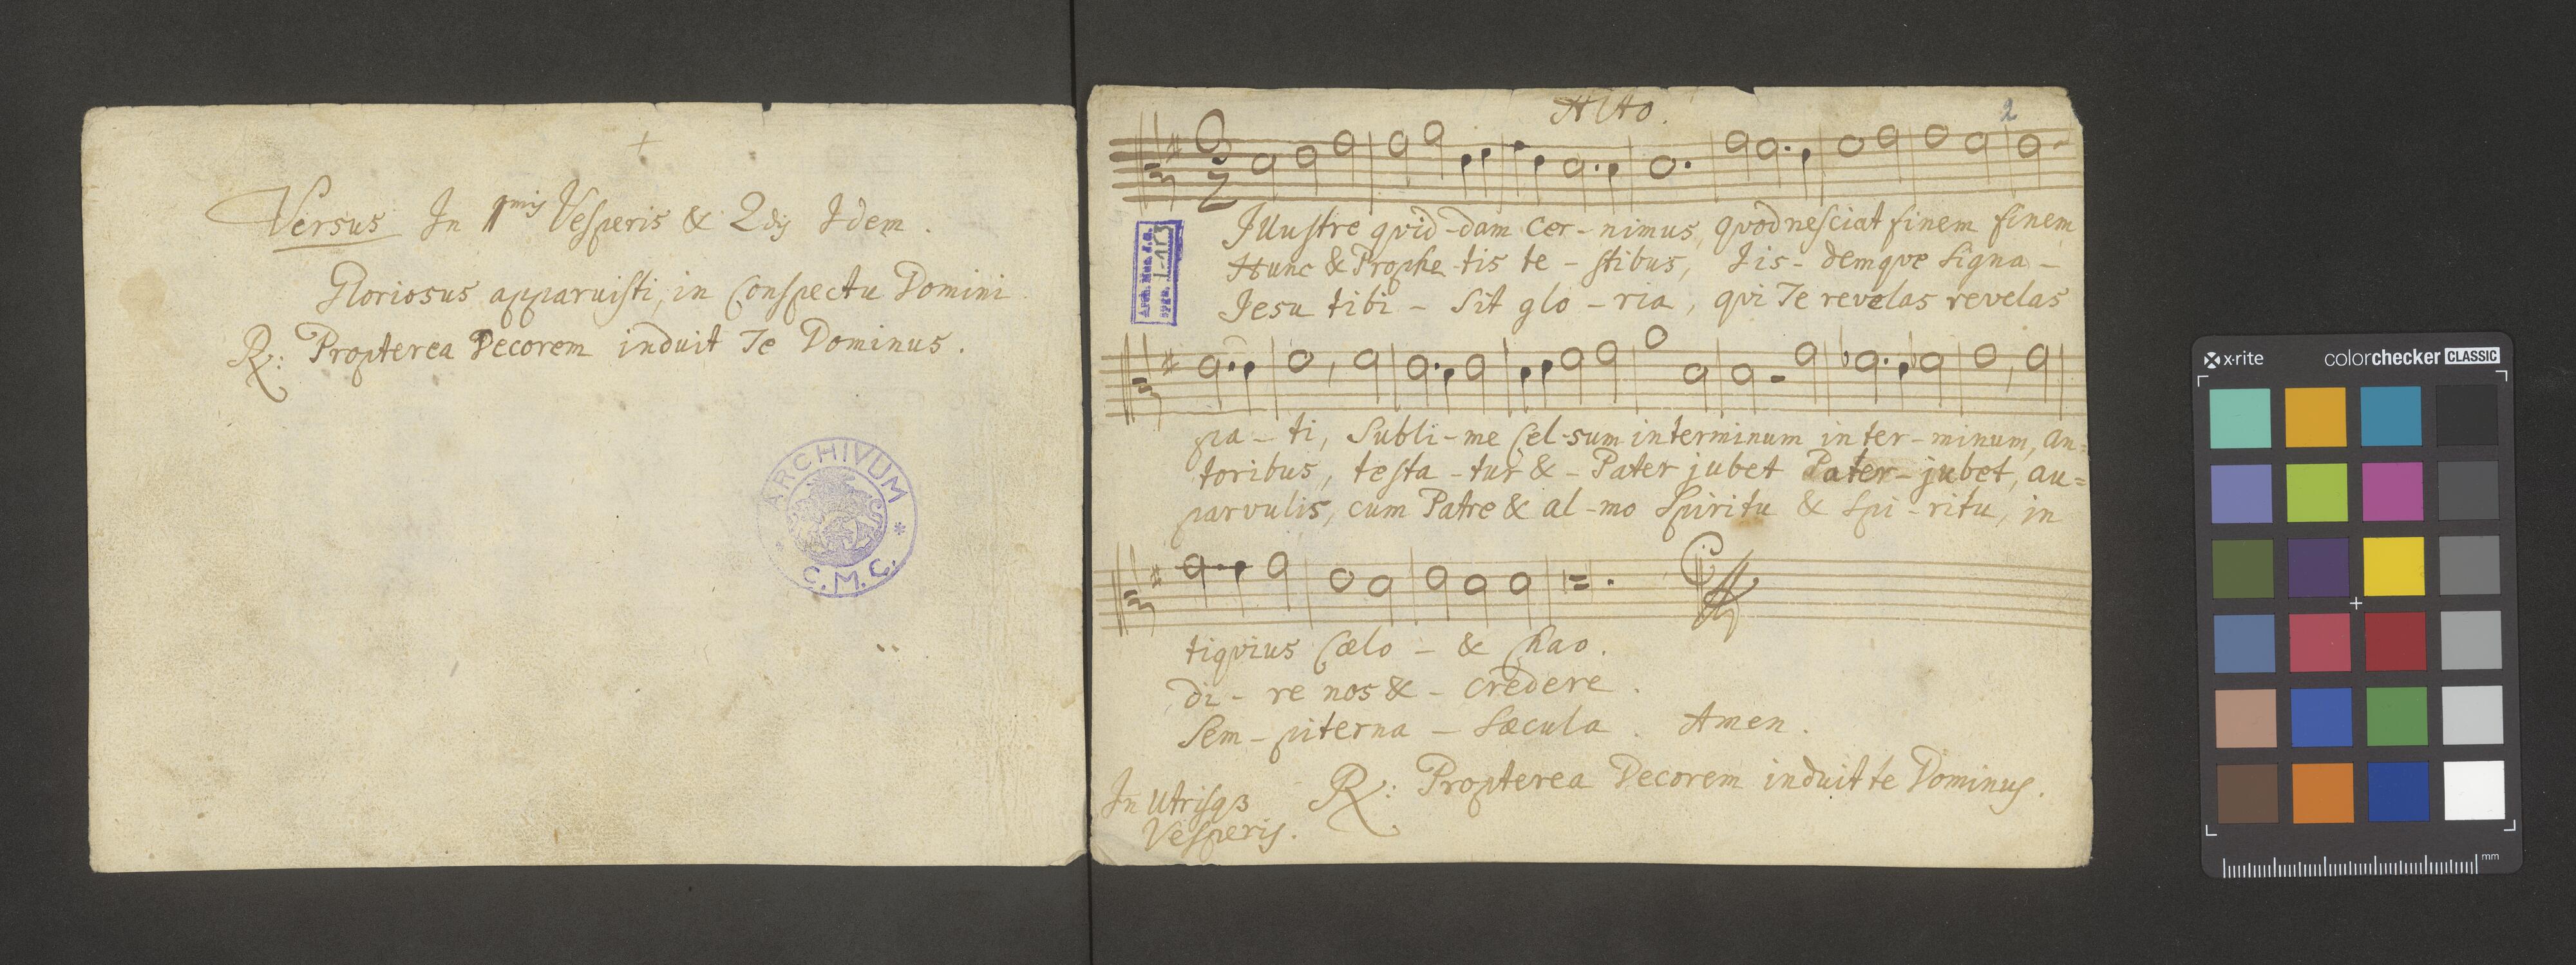 Versus In 1mis Vesperis & 2dis Idem.
Gloriosus apparuisti, in Conspectu Domini
R: Propterea Decorem induit Te Dominus.
ARCHIVUM
C.M.C.
Alto.
2
Illustre quid-dam cer-nimus, quod nesciat finem finem
Hunc & Prophe-tis te-stibus, Iis-demque signa-
Jesu tibi - sit glo-ria, qui Te revelas revelas
pa-ti, Subli-me Cel-sum interminum inter-minum, an-
toribus, testa-tur & - Pater jubet Pater-jubet, au=
parvulis, cum Patre & al-mo Spiritu & Spi-ritu, in
tiquius Cælo - & Chao.
di-re nos & - credere.
Sem-piterna - Sæcula. Amen.
In Utrisq3 R: Propterea Decorem induit te Dominus.
Vesperis.
x·rite colorchecker CLASSIC
mm